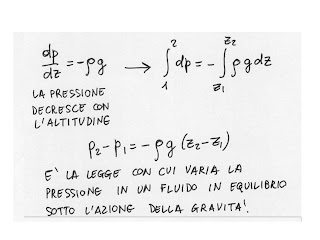 dp/dz = -ρg → ∫₁² dp = - ∫_{z₁}^{z₂} ρ g dz
LA PRESSIONE
DECRESCE CON
L'ALTITUDINE
P₂ - P₁ = - ρg (z₂ - z₁)
E' LA LEGGE CON CUI VARIA LA
PRESSIONE IN UN FLUIDO IN EQUILIBRIO
SOTTO L'AZIONE DELLA GRAVITA'.